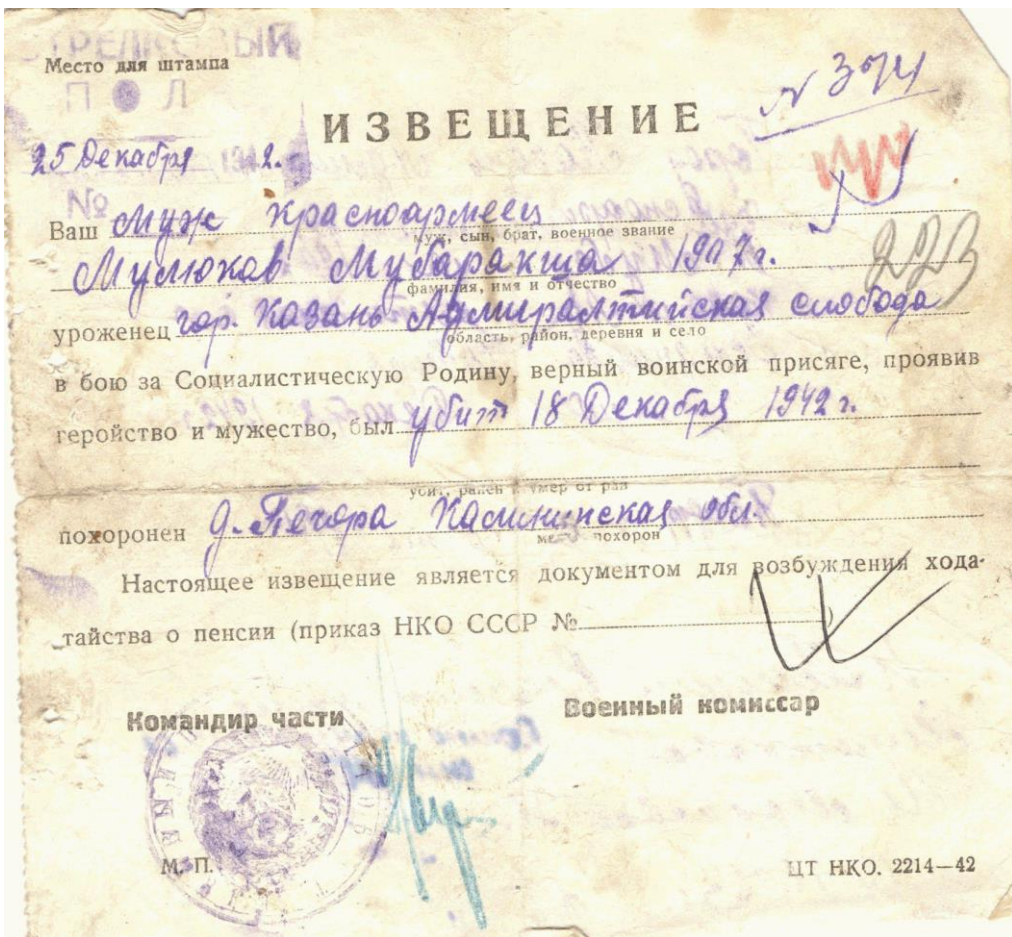 СТРЕЛКОВЫЙ
Место для штампа
П Л
ИЗВЕЩЕНИЕ
N 374
25 Декабря 1942.
№
Ваш муж красноармеец
муж, сын, брат, военное звание
Мулюков Мубаракша 1907 г.
223
фамилия, имя и отчество
уроженец гор. Казань Адмиралтийская слобода
область, район, деревня и село
в бою за Социалистическую Родину, верный воинской присяге, проявив
геройство и мужество, был убит 18 Декабря 1942 г.
убит, ранен и умер от ран
похоронен д. Печора Калининская обл.
место похорон
Настоящее извещение является документом для возбуждения хода-
тайства о пенсии (приказ НКО СССР №
Командир части
Военный комиссар
М. П.
ЦТ НКО. 2214—42